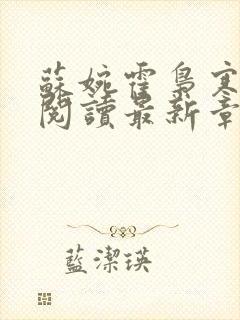 蘇婉霍梟寒
閱讀最新章
藍潔瑛